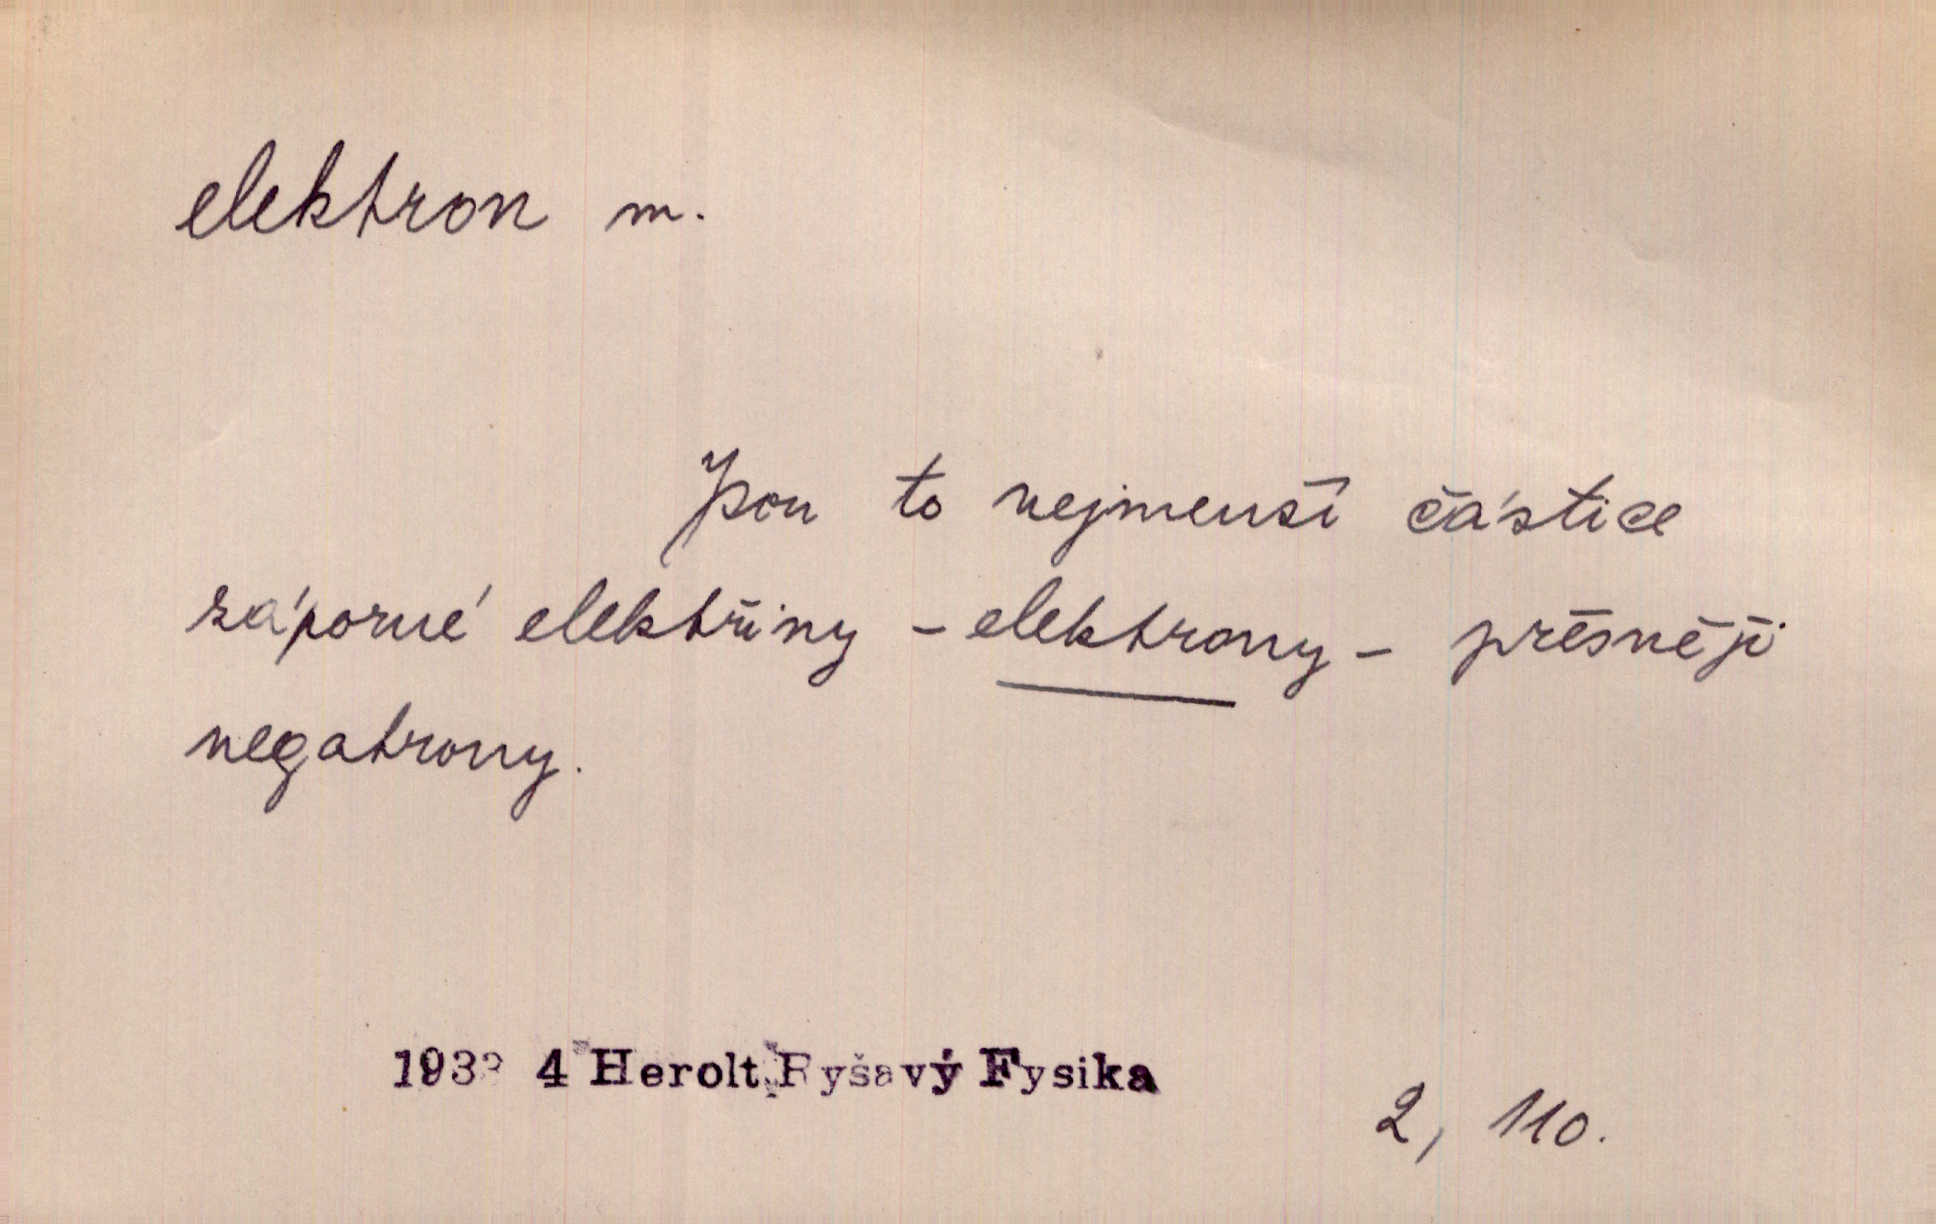 elektron m.
Jsou to nejmenší částice
záporné elektřiny - elektrony - přesněji
negatrony.
4 Herolt, Ryšavý Fysika
2, 110.